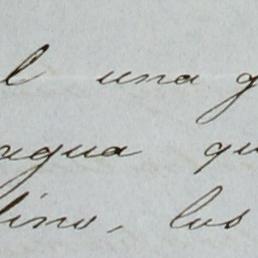 l una g
agua qu
lino, los